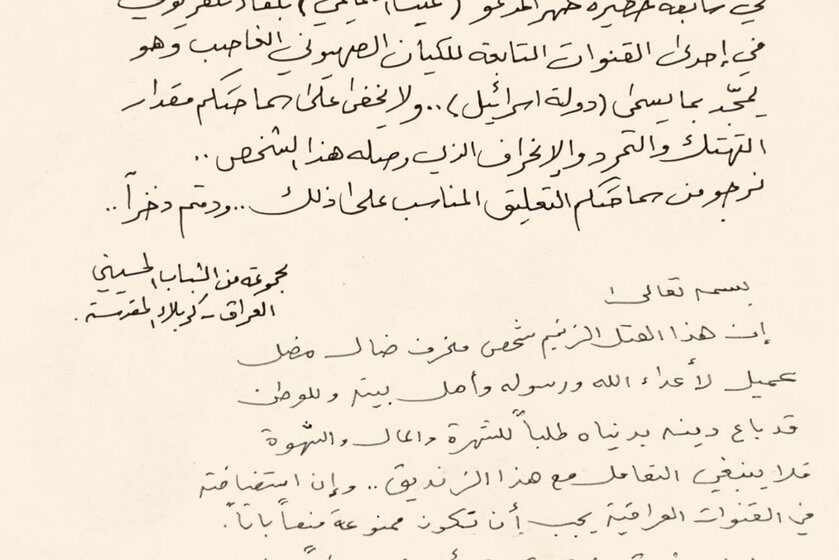 في سابقة خطيرة ظهر المدعو ( ) بلقاء تلفزيوني
في إحدى القنوات التابعة للكيان الصهيوني الغاصب وهو
يمجّد بما يسمى (دولة اسرائيل).. ولا يخفى على سماحتكم مقدار
التهتك والتمرد والإنحراف الذي وصله هذا الشخص ..
نرجو من سماحتكم التعليق المناسب على ذلك .. ودمتم ذخراً ..
مجموعة من الشباب الحسيني
العراق - كربلاء المقدسة .
بسمه تعالى
إن هذا العتل الزنيم شخص منحرف ضال مضل
عميل لأعداء الله ورسوله وأهل بيته وللوطن
قد باع دينه بدنياه طلباً للشهرة والمال والشهوة
فلا ينبغي التعامل مع هذا الزنديق .. وإن استضافته
في القنوات العراقية يجب أن تكون ممنوعة منعاً باتاً .